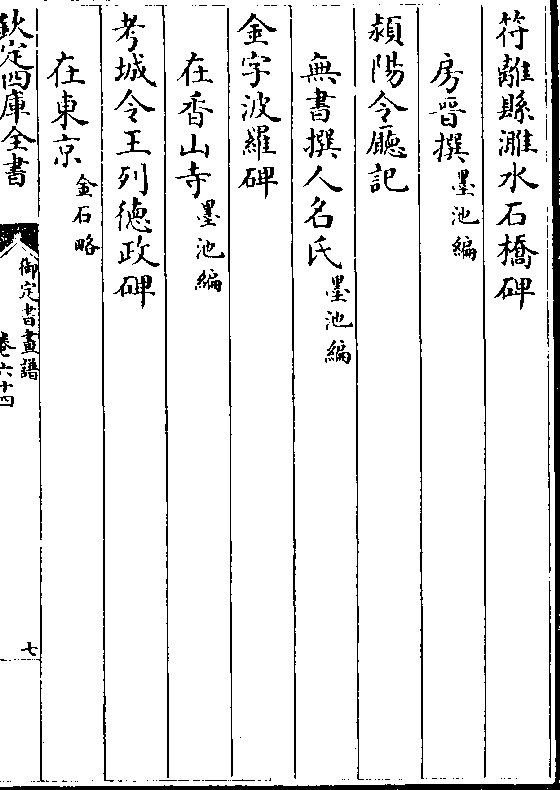 符離縣濉水石橋碑
房晉撰墨池編
潁陽令廳記
無書撰人名氏墨池編
金字波羅碑
在香山寺墨池編
考城令王列徳政碑
在東京金石略
欽定四庫全書
御定書畫譜
卷六十四
七